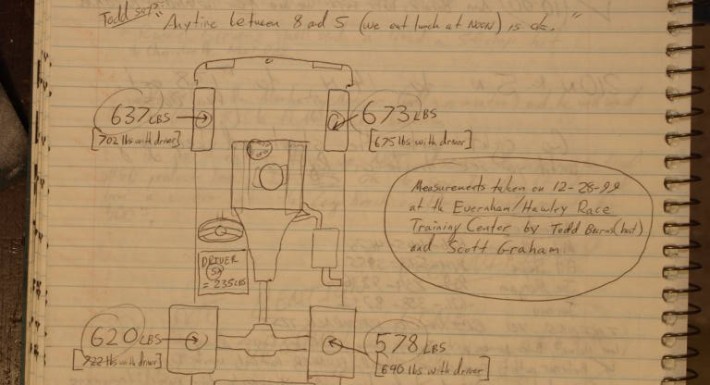 Todd says: "Anytime between 8 and 5 (we eat lunch at NOON) is ok."
637 LBS 673 LBS
[702 lbs with driver] [675 lbs with driver]
Measurements taken on 12-28-99
at the Evernham/Hawley Race
Training Center by Todd
and Scott Graham
DRIVER
= 235 LBS
620 LBS 578 LBS
lbs with driver] lbs with driver]